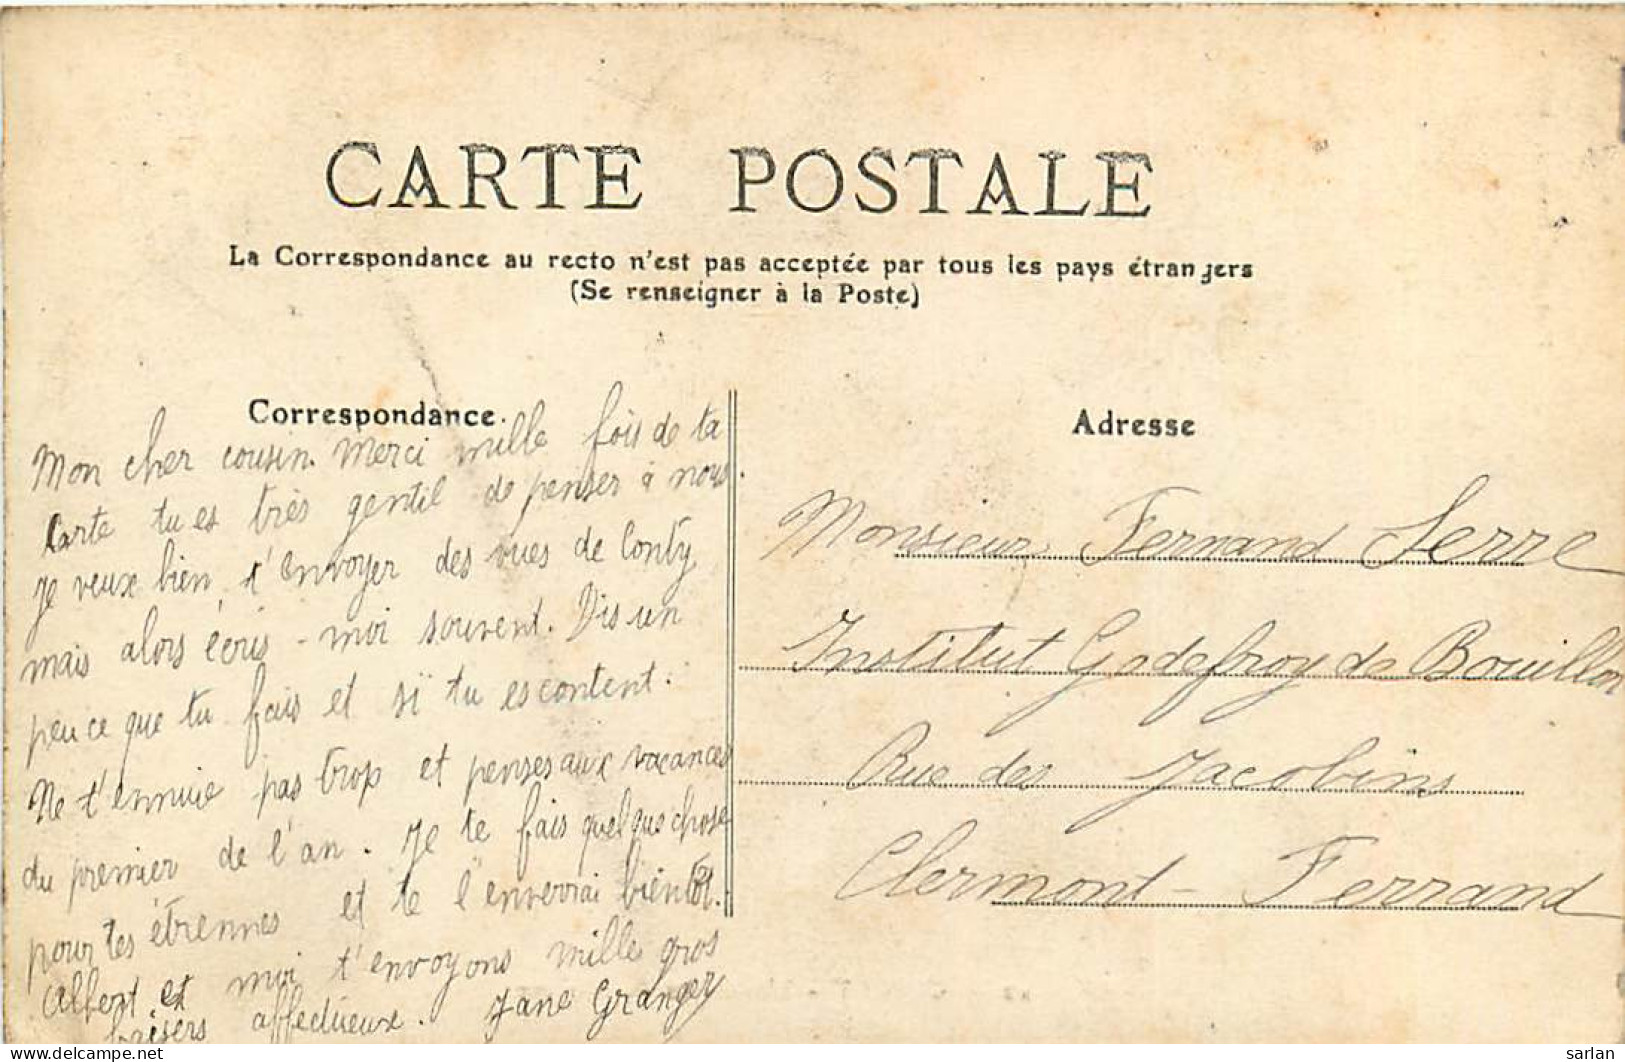 CARTE POSTALE
La Correspondance au recto n'est pas acceptée par tous les pays étrangers
(Se renseigner à la Poste)
Correspondance.
Mon cher cousin. Merci mille fois de ta
carte tu es très gentil de penser à nous.
je veux bien, t'envoyer des vues de Conty
mais alors écris-moi souvent. Dis un
peu ce que tu fais et si tu es content.
Ne t'ennuie pas trop et penses aux vacances
du premier de l'an. Je te fais quelque chose
pour tes étrennes et te l'enverrai bientôt.
Albert et moi t'envoyons mille gros
baisers affectueux. Jane Granger
Adresse
Monsieur Fernand Serre
Institut Godefroy de Bouillon
Rue des Jacobins
Clermont-Ferrand
www.delcampe.net
sarlan